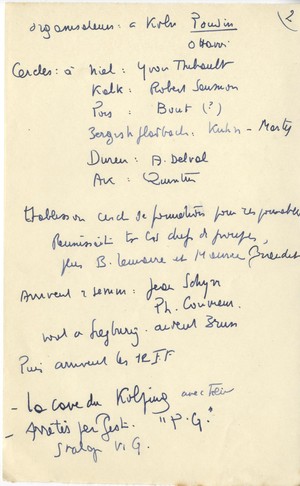 2
organisateurs : à Köln Poudin
Ottavi
Cercles : à Niel : Yvon Thibault
Kalk : Robert Saumon
Pors : Bout (?)
Bergischgladbach : Kuhn - Marty
Duren : A. Delval
Aix : Quentin
Etablisson cercle de formations pour responsables
Réunissait ts les chefs de groupes,
plus B. Lemaire et Maurice
Arrivent 2 semin : Jean Schyn
Ph. Couvreur
vont à Siegburg.
Puis arrivent les 1e F.F.
- La cave du Kolping avec
- Arrêtés par Gest. "P.G."
Stalag VI G.